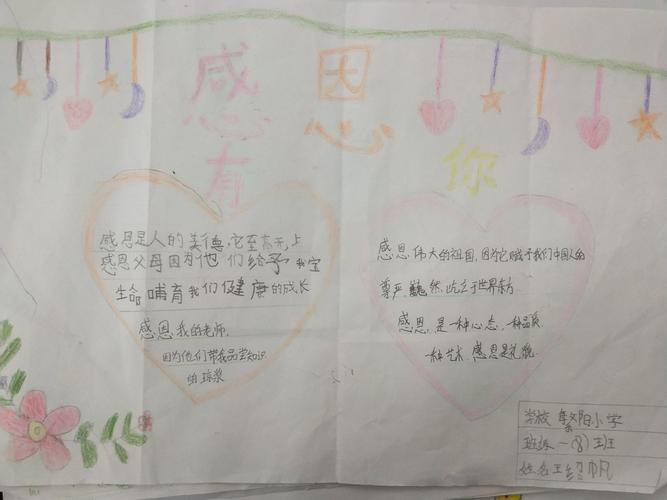 感恩
有
你
感恩是人的美德,它至高无上
感恩父母因为他们给予我宝
生命哺育我们健康的成长
感恩我的老师,
因为他们带我品尝知识
的琼浆
感恩伟大的祖国,因为它赋予我们中国人的
尊严巍然屹立于世界东方
感恩,是一种心态,一种品质
一种艺术,感恩是礼貌
学校 繁阳小学
班级一(8)班
姓名王绍帆